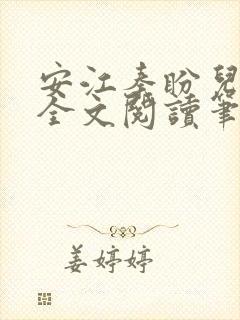 安江秦盼兒
全文閱讀筆
姜婷婷